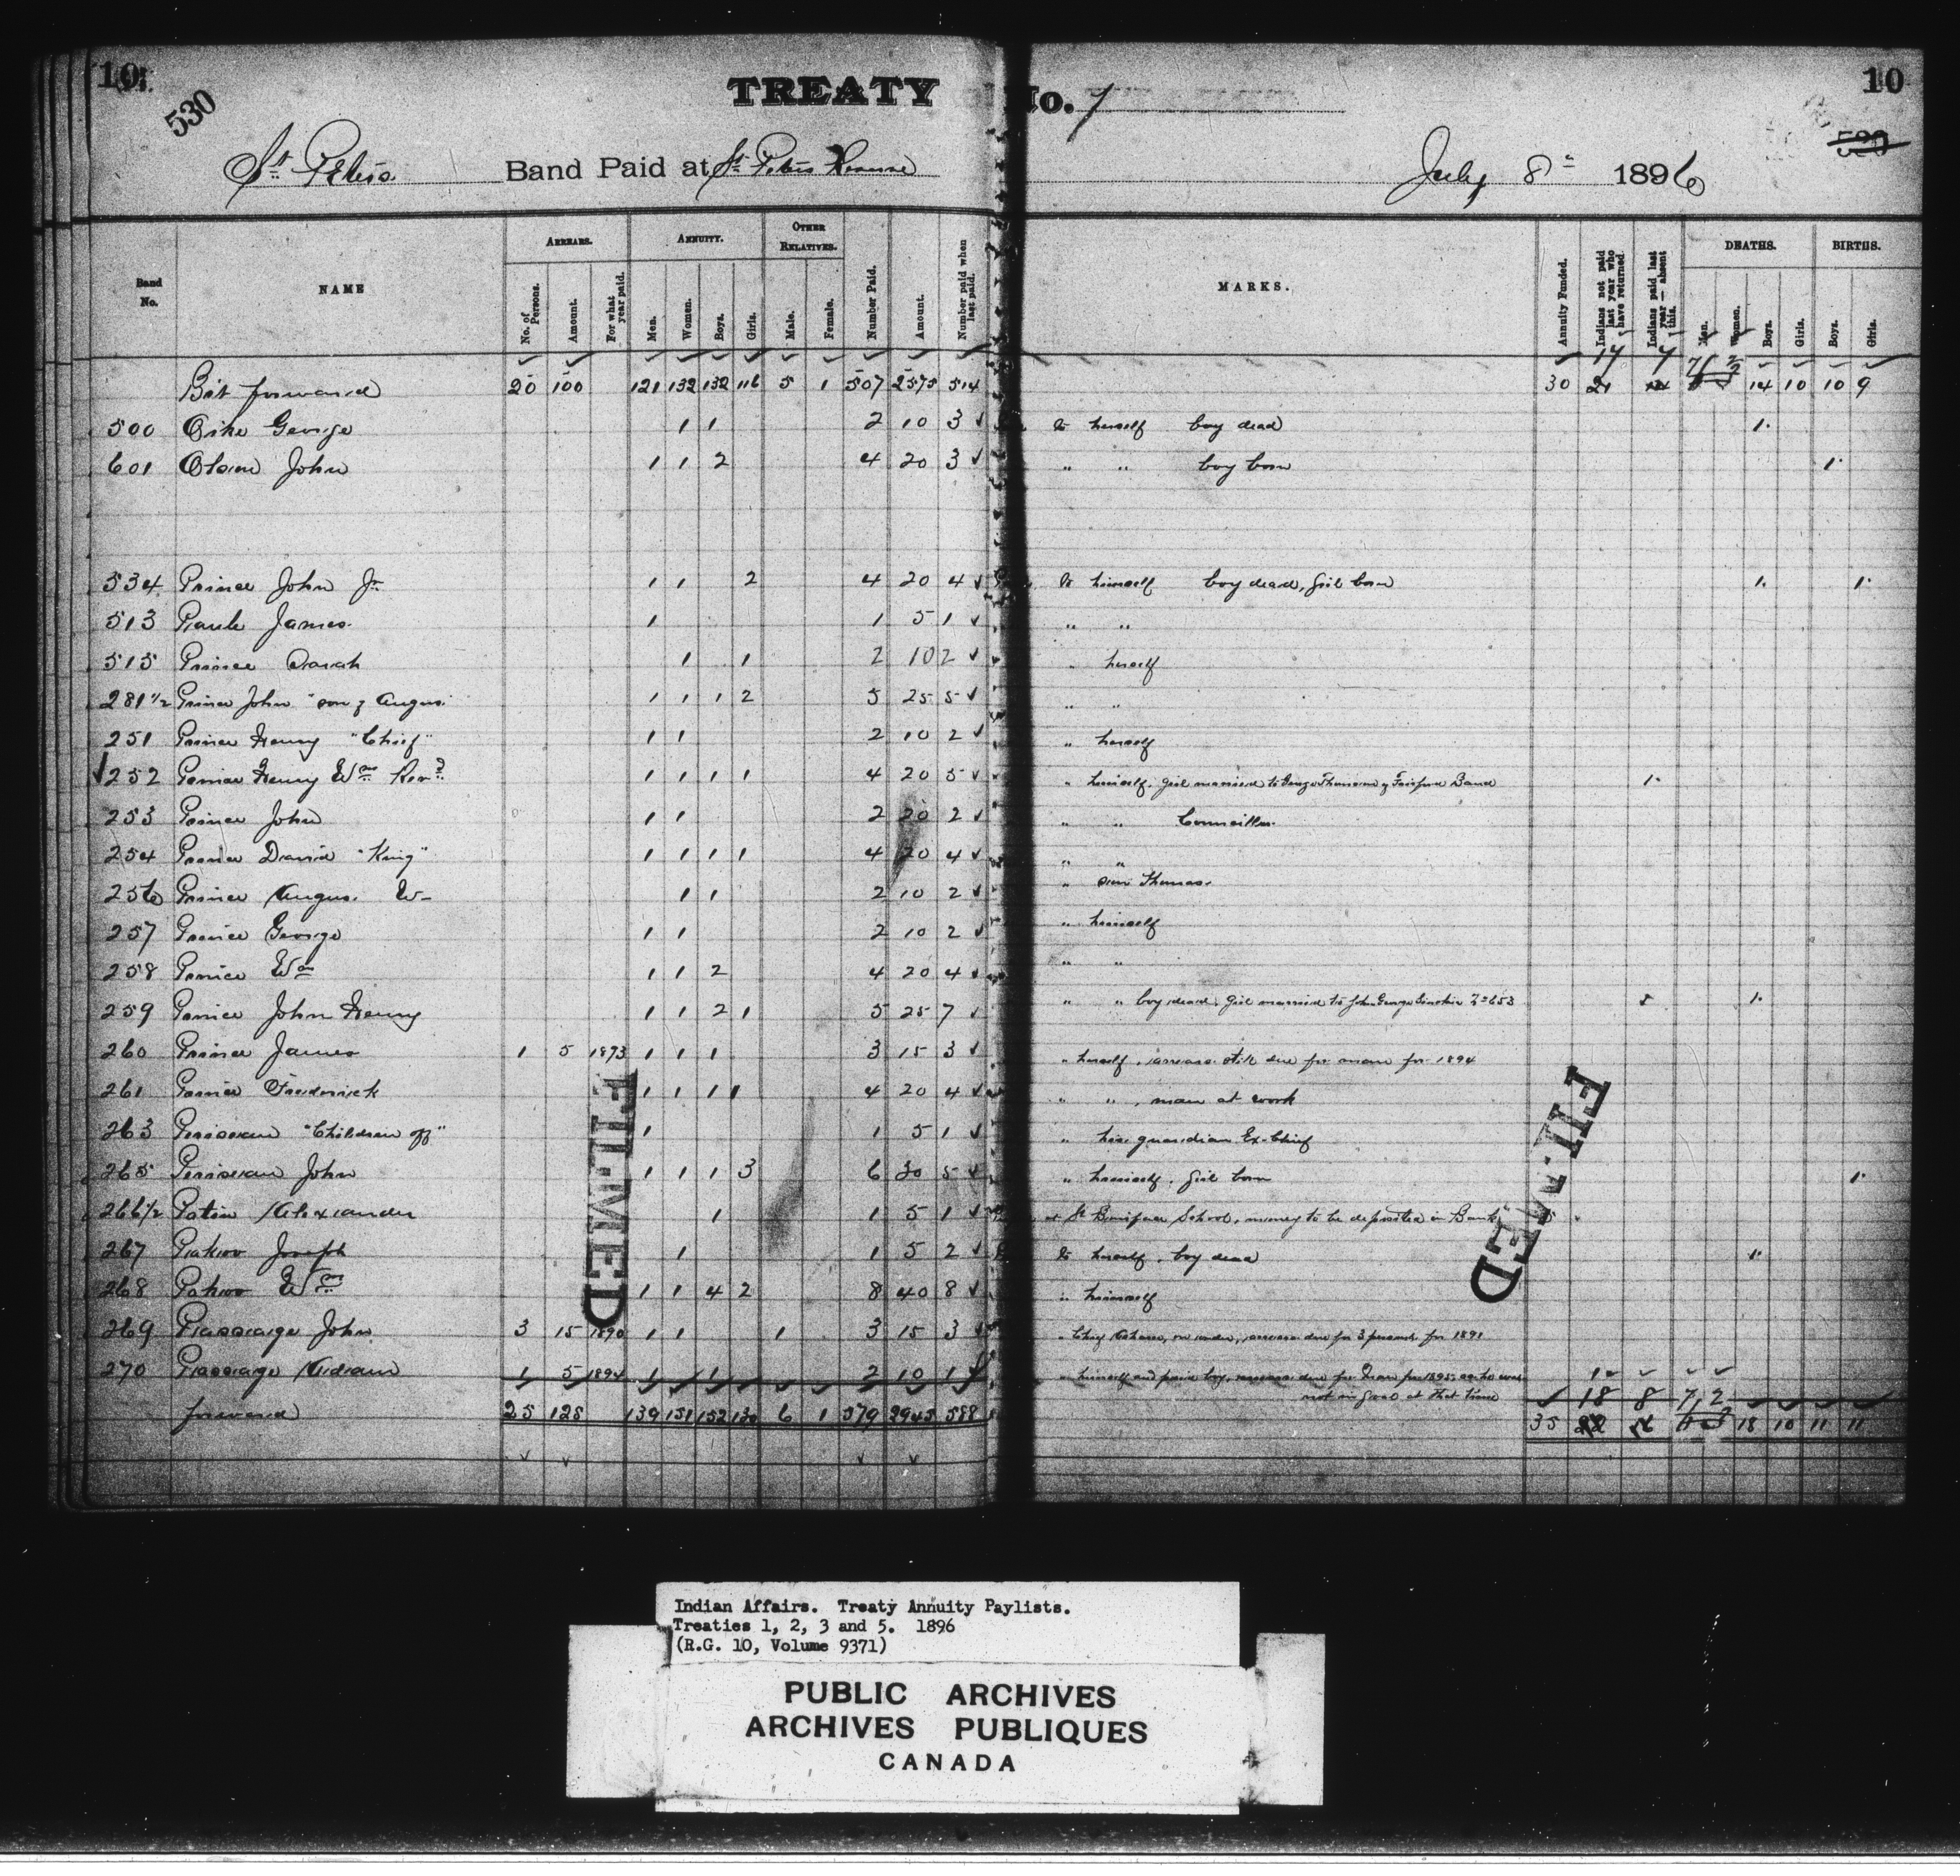 10
530
TREATY No. 1
10
530
St. Peters Band Paid at St. Peters Reserve July 8th 1896
Band No. NAME ARREARS. ANNUITY. OTHER RELATIVES. Number Paid. Amount. Number paid when last paid. MARKS. Annuity Funded. Indians not paid last year who have returned. Indians paid last year — absent this. DEATHS. BIRTHS.
No. of Persons. Amount. For what year paid. Men. Women. Boys. Girls. Male. Female. Men. Women. Boys. Girls. Boys. Girls.
17 7 7 2
Bot forward 20 100 121 132 132 116 5 1 507 2575 514 30 21 14 10 10 9
500 George 1 1 2 10 3 to herself boy dead 1
601 Olson John 1 1 2 4 20 3 " " boy born 1
534 Prince John Jr 1 1 2 4 20 4 to himself boy dead, girl born 1 1
513 James 1 1 5 1 " "
515 Prince Sarah 1 1 2 10 2 " herself
281 1/2 Prince John "son of Angus" 1 1 1 2 5 25 5 " "
251 Prince Henry "Chief" 1 1 2 10 2 " herself
252 Prince Henry Wm Revd 1 1 1 1 4 20 5 " himself. girl married to George Band 1
253 Prince John 1 1 2 20 2 " " Councillor.
254 Prince David "King" 1 1 1 1 4 20 4 " "
256 Prince Angus. W- 1 1 2 10 2 " son Thomas.
257 Prince George 1 1 2 10 2 " himself
258 Prince Wm 1 1 2 4 20 4 " "
259 Prince John Henry 1 1 2 1 5 25 7 " " boy dead, girl married to John George Sinclair No 653 1
260 Prince James 1 5 1893 1 1 1 3 15 3 " herself, arrears still due for for 1894
261 Prince Frederick 1 1 1 1 4 20 4 " ", man at work
263 "Children of" 1 1 5 1 " his guardian Ex-Chief
265 John 1 1 1 3 6 30 5 " himself. girl born 1
266 1/2 Alexander 1 1 5 1 at St Boniface School, money to be deposited in Bank 5
267 Joseph 1 1 5 2 to herself, boy dead 1
268 Wm 1 1 4 2 8 40 8 " himself
269 Passage John 3 15 1890 1 1 1 3 15 3 arrears due for 3 persons for 1891
270 Passage Adam 1 5 1894 1 1 2 10 1 " himself and paid boy, arrears due for for 1895 as he was 1
not in gaol at that time 18 8 7 2
forward 25 125 139 151 152 130 6 1 579 2945 588 35 22 18 10 11 11
FILMED
FILMED
Indian Affairs. Treaty Annuity Paylists.
Treaties 1, 2, 3 and 5. 1896
(R.G. 10, Volume 9371)
PUBLIC ARCHIVES
ARCHIVES PUBLIQUES
CANADA